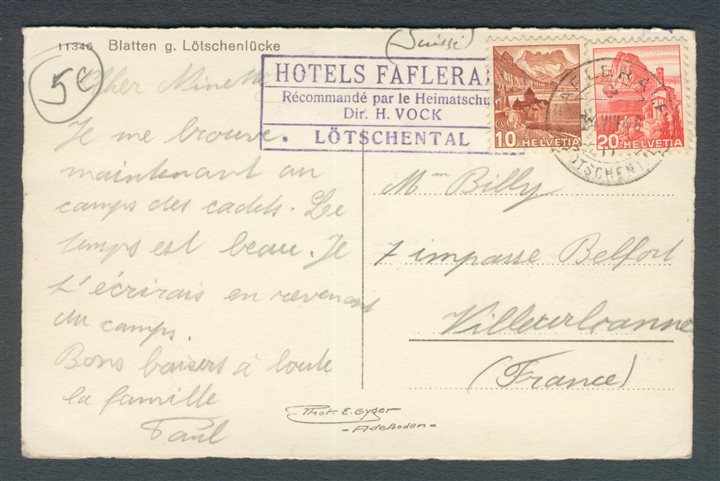 11346 Blatten g. Lötschenlücke
(Suisse)
5e
HOTELS FAFLERA
Récommandé par le Heimatschu
Dir. H. VOCK
* LÖTSCHENTAL
10 HELVETIA
20 HELVETIA
FAFLERALP
VIII 46
(LÖTSCHENTAL)
Cher Minette
Je me trouve
maintenant au
camps des cadets. Le
temps est beau. Je
t'écrirais en revenant
du camps.
Bons baisers à toute
la famille
Paul
Mme Billy
7 impasse Belfort
Villeurbanne
(France)
Phot. E. Gyger
- Adelboden -